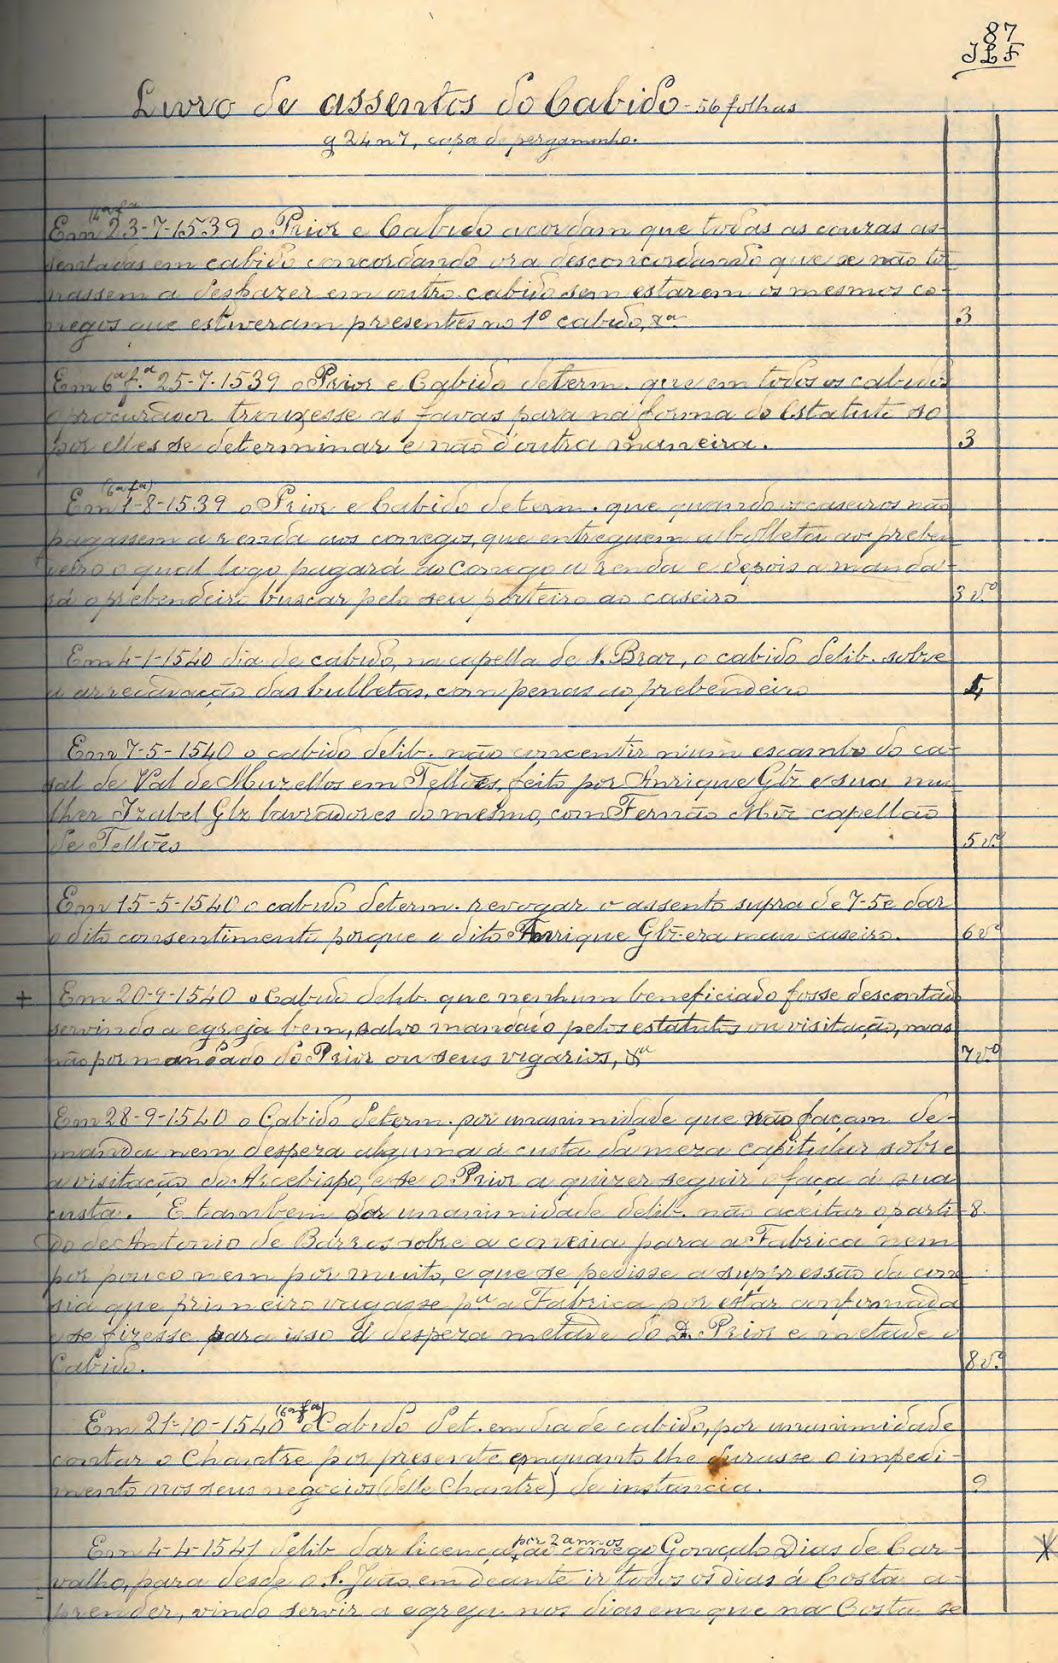 87
JLF
Livro de assentos do Cabido - 56 folhas
g 24 n 7, capa de pergaminho.
(4ª fª)
Em 23-7-1539 o Prior e Cabido acordam que todas as couzas as-
sentadas em cabido concordando ora desconcordando que se não tor
nassem a desfazer em outro cabido sem estarem os mesmos co-
negos que estiveram presentes no 1º cabido, &ª. 3
Em 6ª f.ª 25-7-1539 o Prior e Cabido determ. que em todos os cabidos
o procurador trouzesse as favas para na forma do Estatuto so
por elles se determinar e não d'outra maneira. 3
(6ª fª)
Em 1-8-1539 o Prior e Cabido determ. que quando os caseiros não
pagassem a renda aos conegos, que entreguem a bulleta ao preben
deiro o qual logo pagará ao conego a renda e depois a manda-
rá o prebendeiro buscar pelo seu porteiro ao caseiro 3 vº
Em 4-1-1540 dia de cabido, na capella de S. Braz, o cabido delib. sobre
a arrecadação das bulletas, com penas ao prebendeiro 4
Em 7-5-1540 o cabido delib. não concentir num escambo do ca-
sal de Val de Muzellos em Tellões, feito por Anrique Glz e sua mu
lher Izabel Glz lavradores do mesmo, com Fernão Miz capellão
de Tellões 5 vº
Em 15-5-1540 o cabido determ. revogar o assento supra de 7-5 e dar
o dito consentimento porque o dito Anrique Glz era mau caseiro. 6 vº
+ Em 20-9-1540 o Cabido delib. que nenhum beneficiado fosse descontado
servindo a egreja bem, salvo mandado pelos estatutos ou visitação, mas
não por mandado do Prior ou seus vigarios, &ª 7 vº
Em 28-9-1540 o Cabido determ. por unanimidade que não façam de-
manda nem despeza alguma á custa da meza capitular sobre
a visitação do Arcebispo, e se o Prior a quizer seguir o faça á sua
custa. E tambem por unanimidade delib. não aceitar o parti- 8.
do de Antonio de Barros sobre a conesia para a Fabrica nem
por pouco nem por muito, e que se pedisse a supressão da cone
sia que primeiro vagasse pª a Fabrica por estar confirmada
e se fizesse para isso a despeza metade do D. Prior e metade o
Cabido. 8 vº
(6ª fª)
Em 21-10-1540 o Cabido det. em dia de cabido, por unanimidade
contar o Chantre por presente emquanto lhe durasse o impedi-
mento nos seus negocios (delle Chantre) de instancia. 9
por 2 annos
Em 4-4-1541 delib. dar licença, ao conego Gonçalo Dias de Car-
valho, para desde o S. João em deante ir todos os dias á Costa a-
prender, vindo servir a egreja nos dias em que na Costa se